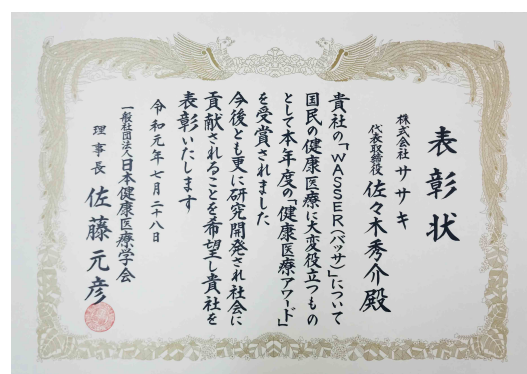 表彰状
株式会社 ササキ
代表取締役 佐々木秀介殿
貴社の「WASSER(バッサ)」について
国民の健康医療に大変役立つもの
として本年度の「健康医療アワード」
を受賞されました
今後とも更に研究開発され社会に
貢献されることを希望し貴社を
表彰いたします
令和元年七月二十八日
一般社団法人日本健康医療学会
理事長 佐藤元彦